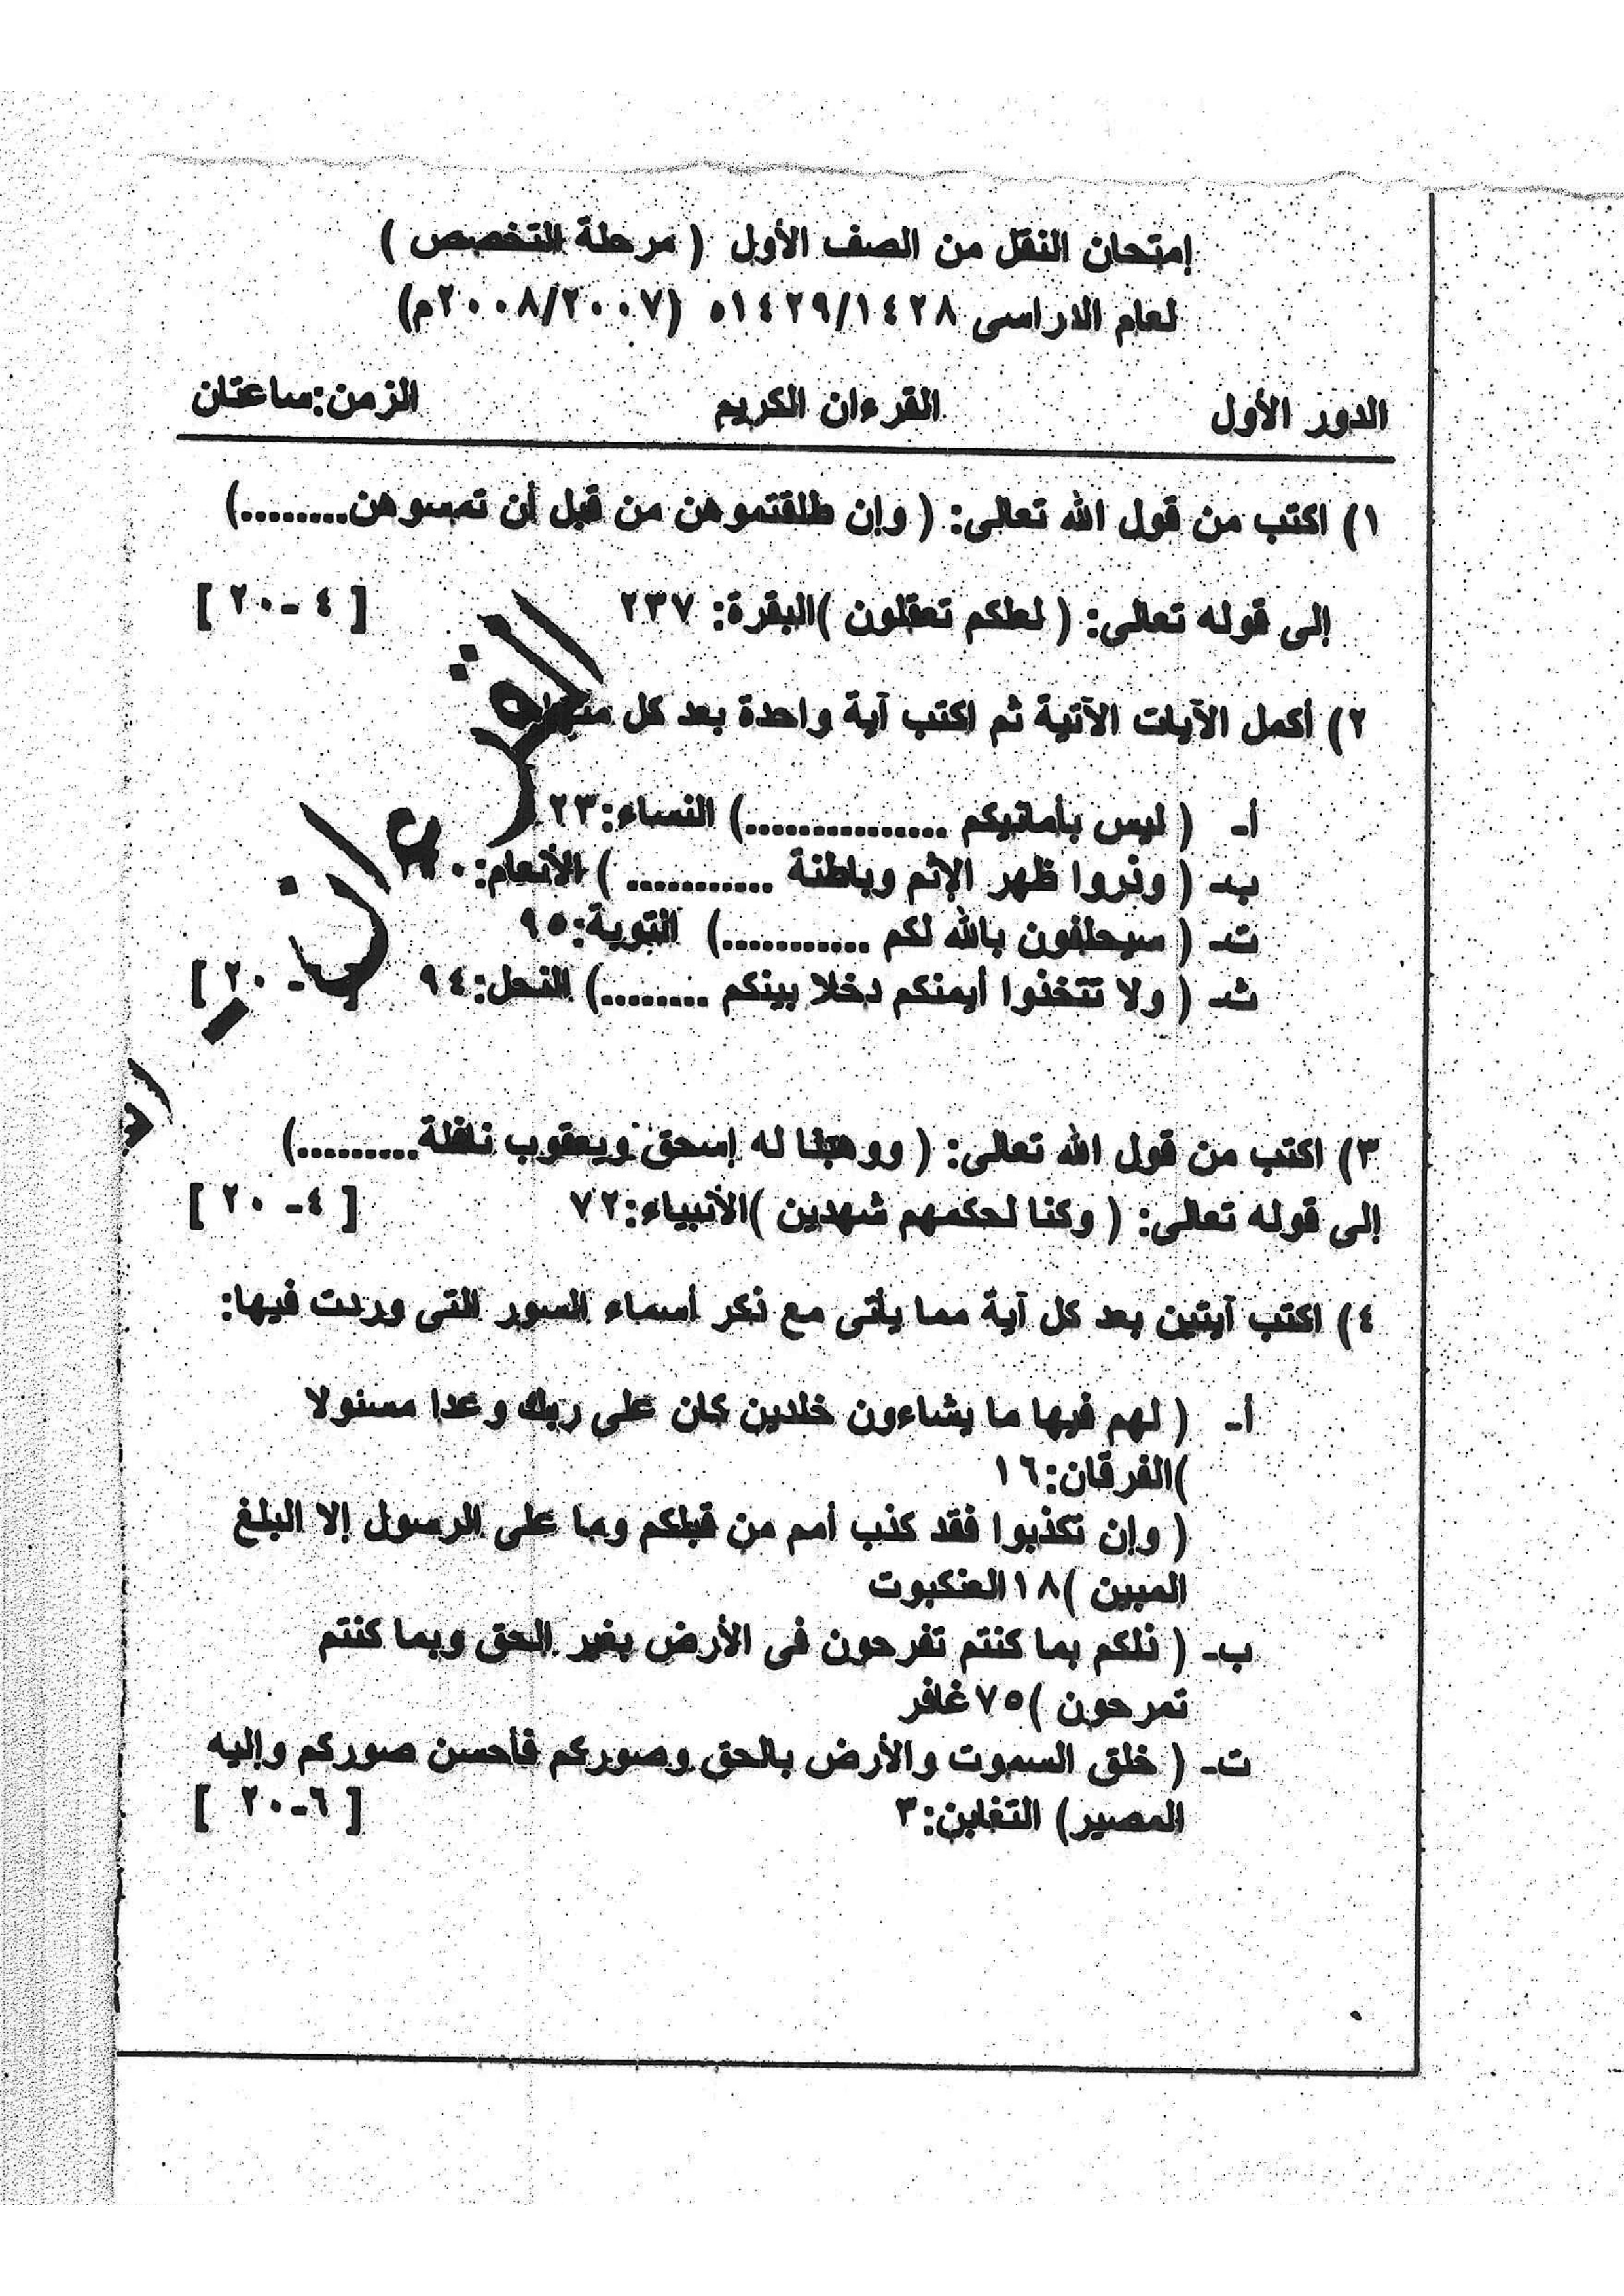 إمتحان النقل من الصف الأول ( مرحلة التخصص )
لعام الدراسى ١٤٢٩/١٤٢٨ه (٢٠٠٨/٢٠٠٧م)
الدور الأول القرءان الكريم الزمن:ساعتان
١) اكتب من قول الله تعالى: ( وإن طلقتموهن من قبل أن تمسوهن........)
إلى قوله تعالى: ( لعلكم تعقلون )البقرة: ٢٣٧ [ ٤ -٢٠ ]
٢) أكمل الآيات الآتية ثم اكتب آية واحدة بعد كل
أ- ( ليس بأمانيكم ...............) النساء:٢٣
ب- ( وذروا ظهر الإثم وباطنة ........... ) الأنعام:
ت- ( سيحلفون بالله لكم ...........) التوبة:٩٥
ث- ( ولا تتخذوا أيمنكم دخلا بينكم ........) النحل:٩٤ - ٢٠ ]
القرءان
٣) اكتب من قول الله تعالى: ( ووهبنا له إسحق ويعقوب نافلة.........)
إلى قوله تعالى: ( وكنا لحكمهم شهدين )الأنبياء:٧٢ [ ٤- ٢٠ ]
٤) اكتب آيتين بعد كل آية مما يأتى مع ذكر أسماء السور التى وردت فيها:
أ- ( لهم فيها ما يشاءون خلدين كان على ربك وعدا مسئولا
)الفرقان:١٦
( وإن تكذبوا فقد كذب أمم من قبلكم وما على الرسول إلا البلغ
المبين )١٨العنكبوت
ب- ( ذلكم بما كنتم تفرحون فى الأرض بغير الحق وبما كنتم
تمرحون )٧٥غافر
ت- ( خلق السموت والأرض بالحق وصوركم فأحسن صوركم وإليه
المصير) التغابن:٣ [ ٦-٢٠ ]